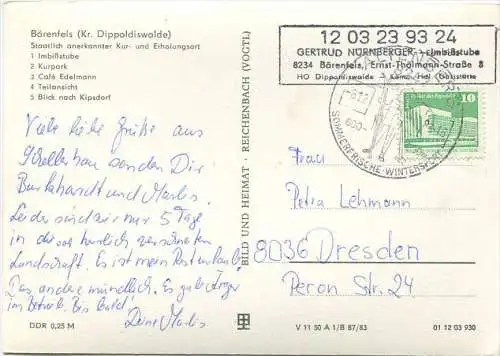 Bärenfels (Kr. Dippoldiswalde)
Staatlich anerkannter Kur- und Erholungsort
1 Imbißstube
2 Kurpark
3 Café Edelmann
4 Teilansicht
5 Blick nach Kipsdorf
12 03 23 93 24
GERTRUD NÜRNBERGER - Imbißstube
8234 Bärenfels, Ernst-Thälmann-Straße 8
HO Dippoldiswalde - Komm. Hdl. Gaststätte
SOMMERFRISCHE-WINTERSPORT
10
Viele liebe Grüße aus
Schellerhau senden Dir
Burkhardt und Marlis.
Leider sind wir nur 5 Tage
in dieser herrlich verschneiten
Landschaft. Es ist mein Resturlaub.
Das andere mündlich. Es gab Ärger
im Betrieb. Bis bald!
Deine Marlis
BILD UND HEIMAT · REICHENBACH (VOGTL)
Frau
Petra Lehmann
8036 Dresden
Peron Str. 24
DDR 0,25 M
V 11 50 A 1/B 87/83
01 12 03 930